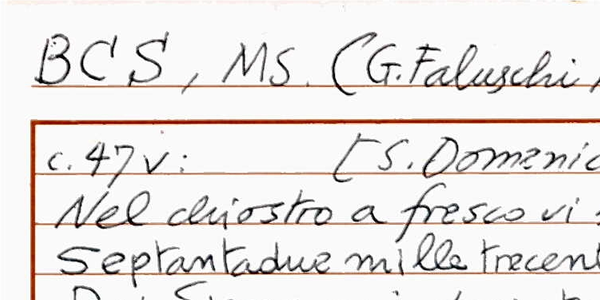 BCS, MS. (G. Faluschi,
c. 47v: [S. Domenic
Nel chiostro a fresco vi
Septantadue mille trecent